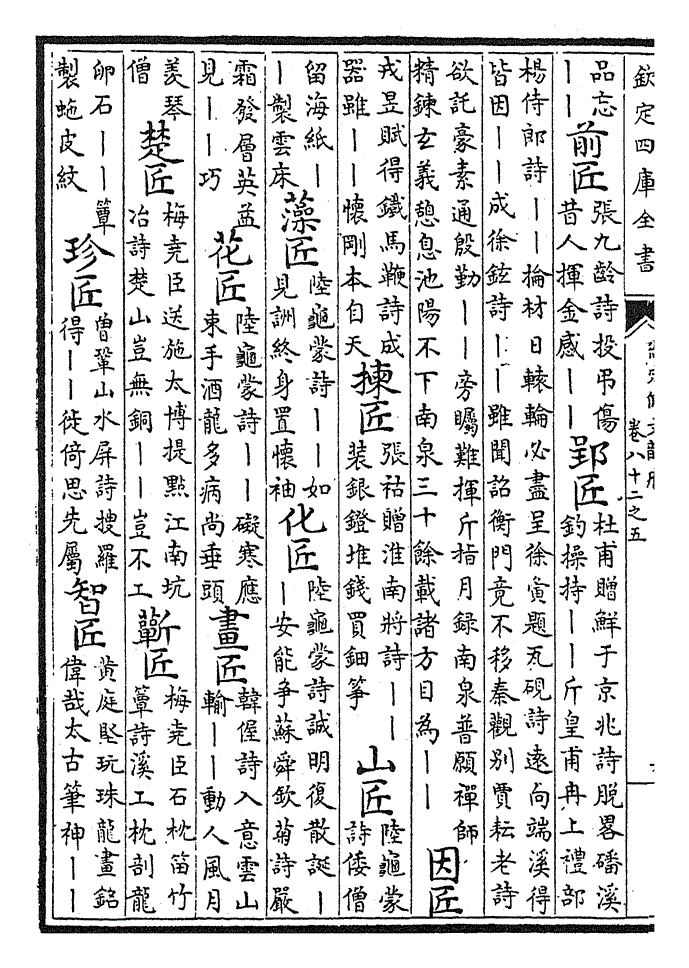 欽定四庫全書
卷八十二之五
品忘
——
前匠
張九齡詩投弔傷
昔人揮金感——
郢匠
杜甫贈鮮于京兆詩脫畧磻溪
釣操持——斤皇甫冉上禮部
楊侍郎詩——掄材日轅輪必盡呈徐夤題瓦硯詩遠向端溪得
皆因——成徐鉉詩——雖聞詔衡門竟不移秦觀別賈耘老詩
欲託豪素通殷勤——旁矚難揮斤指月録南泉普願禪師
精鍊玄義憩息池陽不下南泉三十餘載諸方目為——
因匠
戎昱賦得鐵馬鞭詩成
器雖——懷剛本自天
揀匠
張祜贈淮南將詩——
裝銀鐙堆錢買鈿筝
山匠
陸龜蒙
詩倭僧
留海紙—
—製雲床
藻匠
陸龜蒙詩——如
見詶終身置懷袖
化匠
陸龜蒙詩誠明復散誕—
—安能爭蘇舜欽菊詩嚴
霜發層英益
見——巧
花匠
陸龜蒙詩——礙寒應
束手酒龍多病尚垂頭
畫匠
韓偓詩入意雲山
輸——動人風月
羨琴
僧
楚匠
梅堯臣送施太博提點江南坑
冶詩楚山豈無銅——豈不工
蘄匠
梅堯臣石枕笛竹
簟詩溪工枕剖龍
卵石——簟
製虵皮紋
珍匠
曾鞏山水屏詩搜羅
得——徙倚思先屬
智匠
黃庭堅玩珠龍畫銘
偉哉太古筆神——